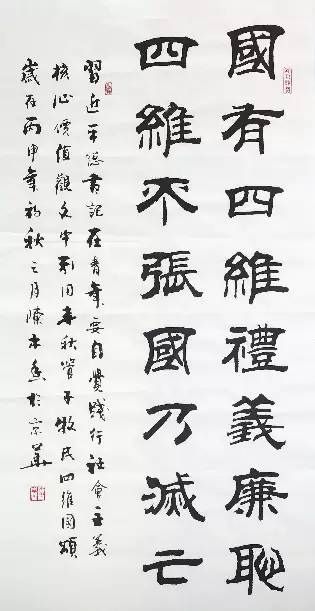 國有四維禮義廉恥
四維不張國乃滅亡
習近平總書記在青年要自覺踐行社會主義
核心價值觀文中引用春秋管子牧民四維國頌
歲在丙申年初秋之月陳木於京華